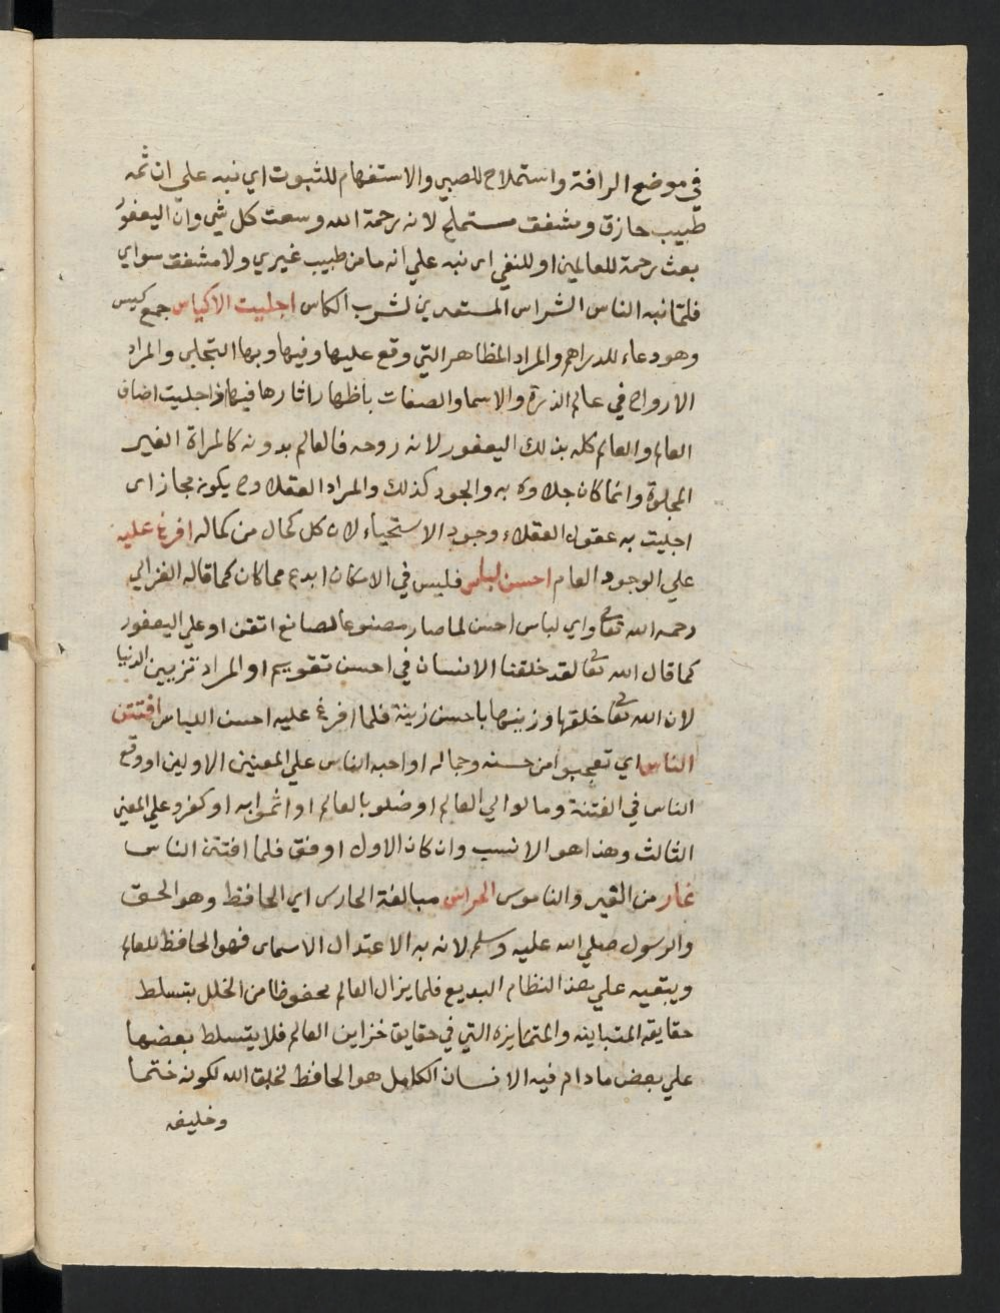 في موضع الرافة واستملاح للصبي والاستفهام للثبوت اي نبه علي ان ثمه
طبيب حازق ومشفق مستملح لانه رحمة الله وسعت كل شي وان اليعفور
بعث رحمة للعالمين او للنفي اى نبه علي انه ما من طبيب غيري ولا مشفق سواي
فلما نبه الناس الشراس المستعدين لشرب الكاس اجليت الاكياس جمع كيس
وهو دعاء للدراهم والمراد المظاهر التي وقع عليها وفيها وبها التجلي والمراد
الارواح في عالم الذرة والاسما والصفات باظهار اثارها فيها فاجليت اضاف
العالم والعالم كله بذلك اليعفور لانه روحه فالعالم بدونه كالمراة الغير
المجلوة وانما كان جلاوه به والجود كذلك والمراد العقلا وح يكون مجازا اى
اجليت به عقول العقلاء وجود الاستحياء لان كل كمال من كماله افرغ عليه
علي الوجود العام احسن لباس فليس في الامكان ابدع مما كان كما قاله الغزالي
رحمه الله تعا واي لباس احسن لما صار مصنوعا لصانع اتقن او علي اليعفور
كما قال الله تعا لقد خلقنا الانسان في احسن تقويم او المراد تزيين الدنيا
لان الله تعا خلقها وزينها باحسن زينة فلما افرغ عليه احسن اللباس افتتن
الناس اي تعجبوا من حسنه وجاله او احبه الناس علي المعنين الاولين او وقع
الناس في الفتنة ومالوا الي العالم او ضلوا بالعالم او اثموا به او كفروا علي المعني
الثالث وهذا هو الانسب وان كان الاول اوفق فلما افتتن الناس
غار من الغير والناموس الحراس مبالغة الحارس اي الحافظ وهو الحق
والرسول صلي الله عليه وسلم لانه به الاعتدال الاسماى فهو الحافظ للعالم
ويبقيه علي هذا النظام البديع فلما يزال العالم محفوظا من الخلل بتسلط
حقايقه المتباينه والمتمايزه التي في حقايق خزاين العالم فلا يتسلط بعضها
علي بعض ما دام فيه الانسان الكامل هو الحافظ لخلق الله لكونه ختما
وخليفه